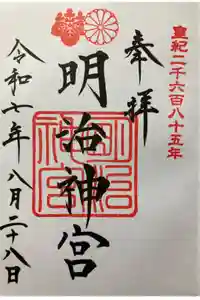 皇紀二千六百八十五年
奉拝
明治神宮
明治神宮
令和七年八月二十八日